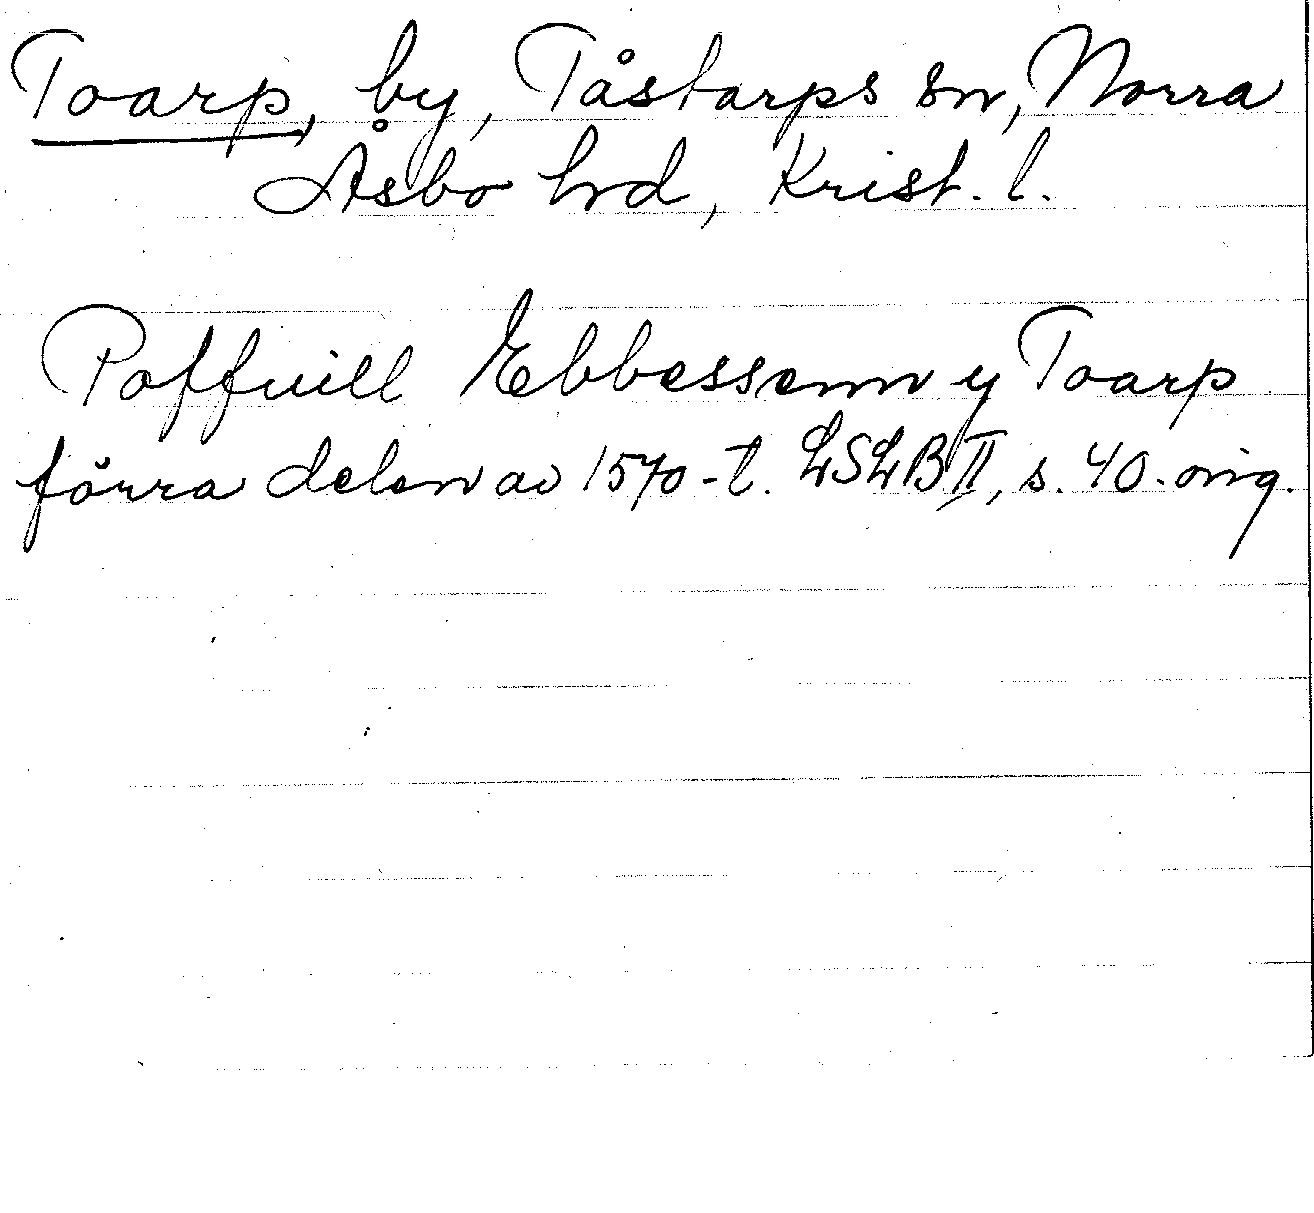 Toarp, by, Tåstarps sn, Norra
Åsbo hrd, Krist. l.
Poffuill Ebbessenn y Toarp
förra delen av 1570-t. LSLB II, s. 40. orig.